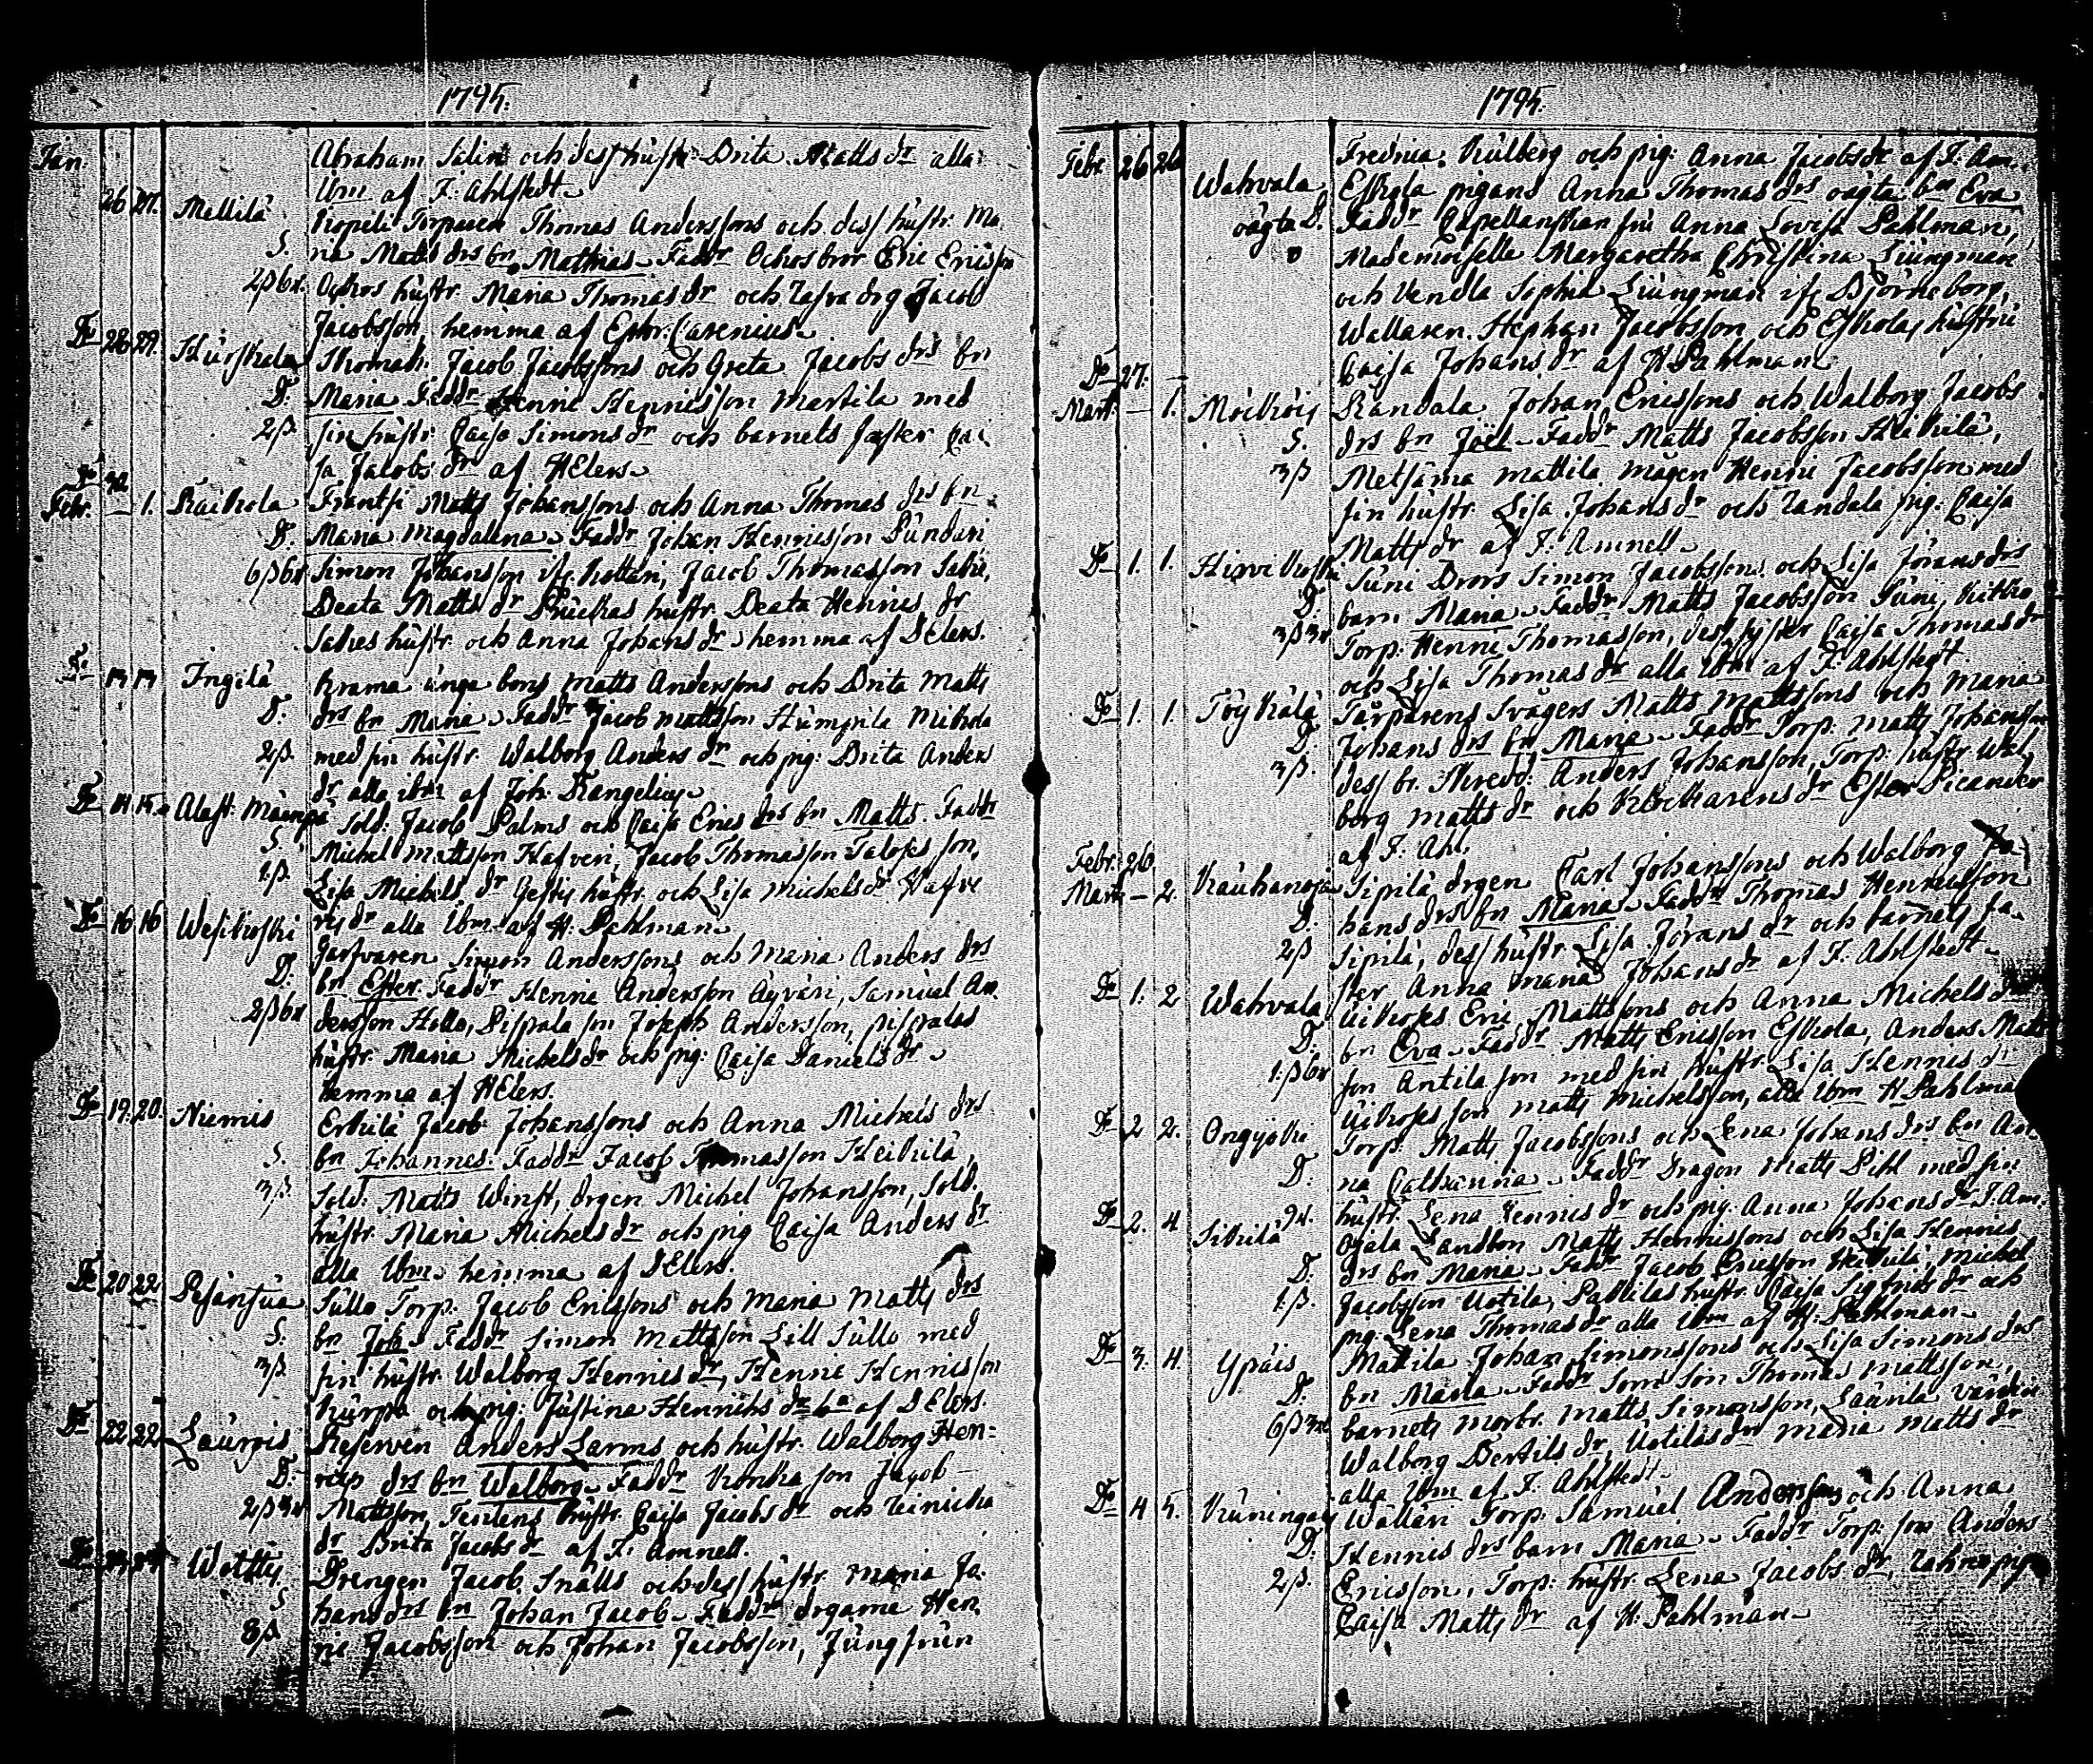 1795.
Jan. Abraham Salin och dess hustr. Brita Matts dr alla
ibm af F. Ahlstedt
26 27. Mellilä Kopeli Torparen Thomas Anderssons och dess hustr. Ma-
S. ria Matts drs bn Mathias Faddr Ockos bror Eric Ericsson
2β6r. Ockos hustr. Maria Thomas dr och drg Jacob
Jacobsson hemma af Carenius
Do 28 29. Thomas Jacob Jacobssons och Greta Jacobs drs bn
D. Maria Faddr Henric Henricsson Martila med
2β. sin hustr. Caisa Simons dr och barnets faster Cai
sa Jacobs dr af H Elers
Do
Febr. — 1. Raikola Frantsi Matts Johanssons och Anna Thomas drs bn
D. Maria Magdalena Faddr Johan Henricsson Pundari
6β6r Simon Johansson Jacob Thomasson
Beata Matts dr hustr. Beata Henrics dr
hustr. och Anna Johans dr hemma af D Elers.
Ingilä Krama bons Matts Anderssons och Brita Matts
D. drs bn Maria Faddr Jacob Mattsson
2β. med sin hustr. Walborg Anders dr och pig: Brita Anders
dr alla ibm af Joh: Rangelius
Do 14 15 Alast: Mäenpä Sold: Jacob Palms och Caisa Erics drs bn Matts Faddr
S. Michel Mattsson Jacob Thomasson son,
1β. Lisa Michels dr hustr. och Lisa Michels dr
dr alla ibm af H: Pahlman
Do 16 16 Wesikoski Garfvaren Simon Anderssons och Maria Anders drs
D. bn Ester Faddr Henric Andersson Äyväri, Samuel An-
2β6r dersson Hollo, son Joseph Andersson,
hustr. Maria Michels dr och pig: Caisa Daniels dr
hemma af H Elers.
Do 19. 20. Niemis Erkilä Jacob Johanssons och Anna Michels drs
S. bn Johannes. Faddr Jacob Thomasson Heikilä,
3β. Sold. Matts Winst, drgen Michel Johansson, Sold.
hustr. Maria Michels dr och pig Caisa Anders dr
alla ibm hemma af D Elers.
Do 20 22 Pesänsua Sullo Torp. Jacob Ericssons och Maria Matts drs
S. bn Job Faddr Simon Mattsson Lill Sullo med
3β. sin hustr. Walborg Henrics dr, Henric Henricsson
och pig: Justina Henriks dr af D Elers.
Do 22 22 Laurois Reserven Anders Larms och hustr. Walborg Hen-
D. rics drs bn Walborg Faddr Konka son Jacob
2β3r Mattsson, hustr. Caisa Jacobs dr och
dr Brita Jacobs dr af F: Amnell.
Do Drengen Jacob Snälls och dess hustr. Maria Jo-
S hans drs bn Johan Jacob Faddr drgarne Hen-
8β ric Jacobsson och Johan Jacobsson, Jungfrun
1795.
Febr. 26 26 Fredrica Kulberg och pig: Anna Jacobs dr af F: Am.
Wahvala Eskola pigans Anna Thomas drs oägta bn Eva
oägta D. Faddr Capellanskan fru Anna Lovisa Pahlman,
Mademoiselle Margaretha Christina Liungman
och Vendla Sophia Liungman ifr. Björneborg,
Wallaren Stephan Jacobsson och Eskolas hustru
Caisa Johans dr af H Pahlman
Do 27. —
Mart. — 1. Randala Johan Ericssons och Walborg Jacobs
S. drs bn Joel Faddr Matts Jacobsson Heikilä,
3β Metsäma Mattila mågen Henric Jacobsson med
sin hustr. Lisa Johans dr och Randala pig. Caisa
Matts dr af F: Amnell
Do 1. 1. Suni Brors Simon Jacobssons och Lisa Jörans drs
D. barn Maria Faddr Matts Jacobsson Suni,
3β3r Torp: Henric Thomasson, dess syster Caisa Thomas dr
och Lisa Thomas dr alla ibm af F: Ahlstedt
Do 1. 1. Töykälä Torparens Svågers Matts Mattssons och Maria
D. Johans drs bn Maria Faddr Torp: Matts Johansson
3β. dess br. Skredd: Anders Johansson, Torp: hustr. Wal
borg Matts dr och Klockarens dr Ester Sicander
af F. Ahl.
Febr. 26.
Mart. — 2. Kauhanoja Sipilä drgen Carl Johanssons och Walborg Jo-
D. hans drs bn Maria Faddr Thomas Henricsson
2β Sipilä, dess hustr. Lisa Jörans dr och barnets fa-
ster Anna Maria Johans dr af F. Ahlstedt
Do 1. 2 Wahvala Eric Mattssons och Anna Michels drs
D. bn Eva Faddr Matts Ericsson Eskola, Anders Matts
1β6r son Antila son med sin hustr. Lisa Henrics dr
son Matts Michelsson, alla ibm H Pahlman
Do 2 2. Torp. Matts Jacobssons och Lena Johans drs bn An-
D. na Catharina Faddr Dragon Matts Pihl med sin
9r. hustr. Lena Henrics dr och pig. Anna Johans dr F. Am.
Do 2. 4 Sikilä Ojala Landbon Matts Henricssons och Lisa Henrics
D. drs bn Maria Faddr Jacob Ericsson Heikilä, Michel
1β. Jacobsson Uotila, hustr. Caisa Sigfrids dr och
pig. Lena Thomas dr alla ibm af H: Pahlman
Do 3. 4. Ypäis Mattila Johan Simonssons och Lisa Simons drs
D. bn Maria Faddr Son Thomas Mattsson,
6β barnets morbr. Matts Simonsson,
Walborg Bertils dr, Uotilas dr Maria Matts dr
alla ibm af F. Ahlstedt
Do 4 5. Torp. Samuel Anderssons och Anna
D. Henrics drs barn Maria Faddr Torp: son Anders
2β. Ericsson, Torp: hustr. Lena Jacobs dr,
Caisa Matts dr af H. Pahlman